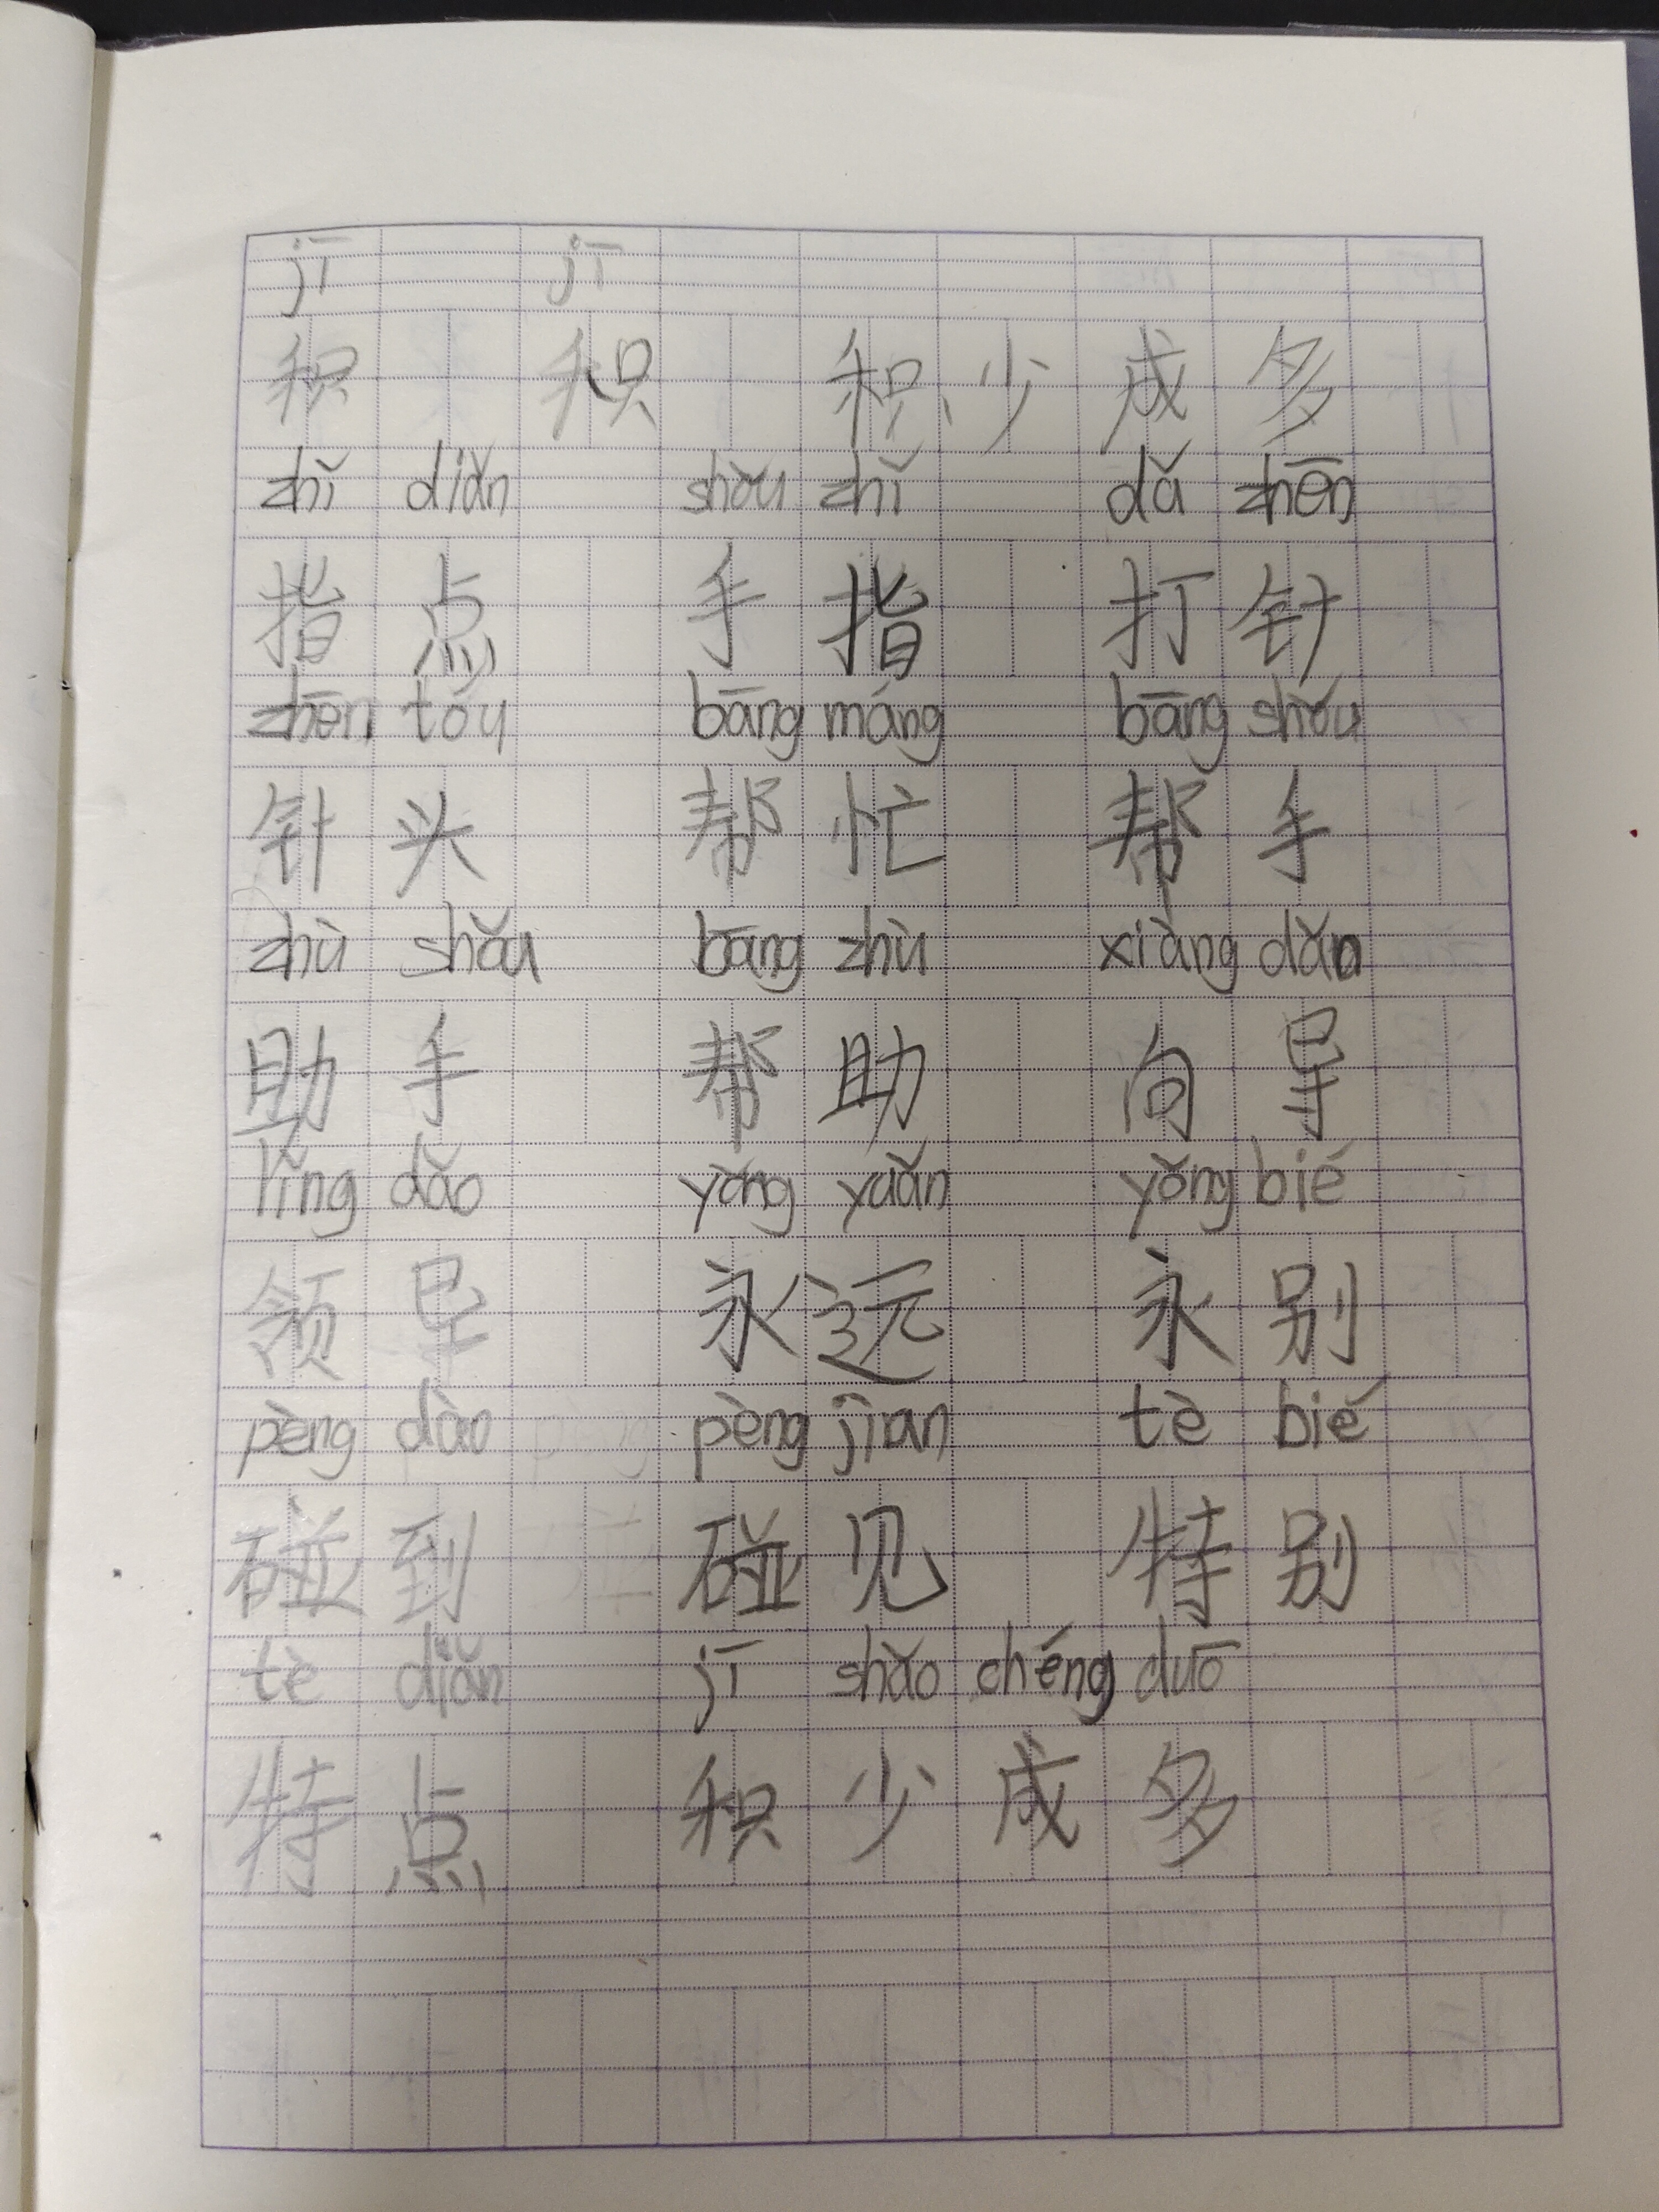 jī jī
积 积 积少成多
zhǐ diǎn shǒu zhǐ dǎ zhēn
指点 手指 打针
zhēn tóu bāng máng bāng shǒu
针头 帮忙 帮手
zhù shǒu bāng zhù xiàng dǎn
助手 帮助 向导
lǐng dǎo yǒng yuǎn yǒng bié
领导 永远 永别
pèng dào pèng jiàn tè bié
碰到 碰见 特别
tè diǎn jī shǎo chéng duō
特点 积少成多